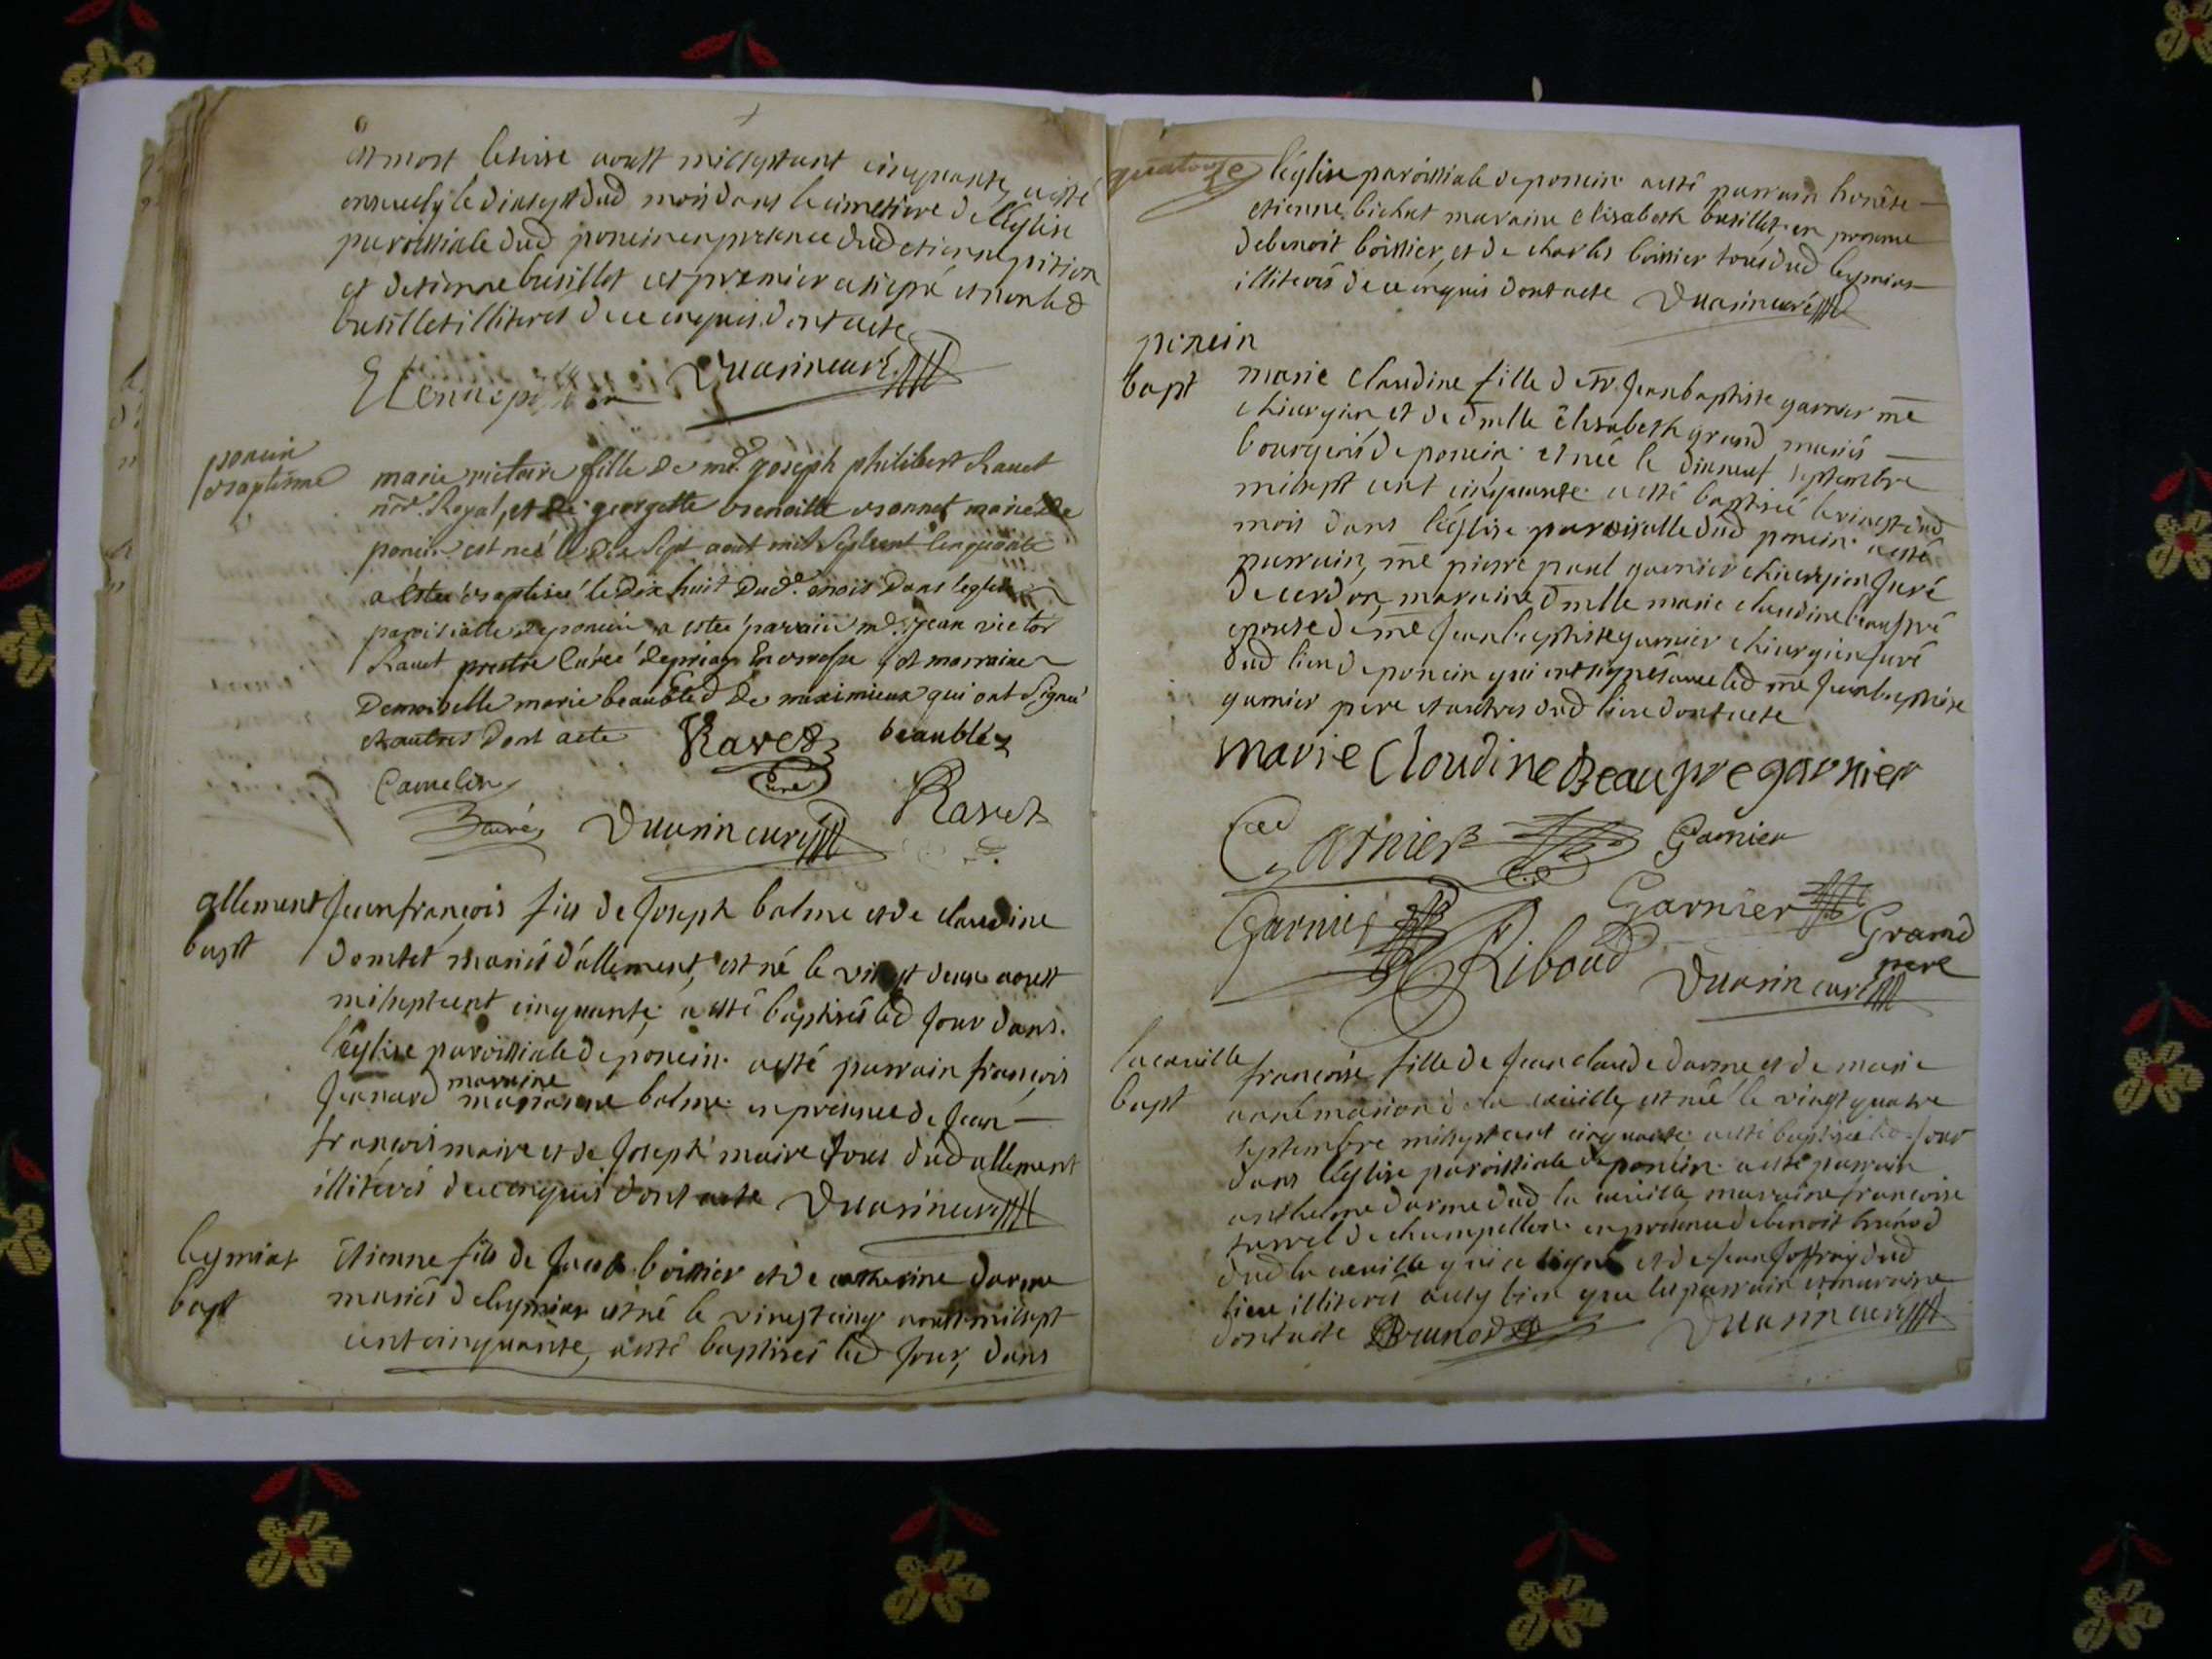 est mort le seize aoust mil sept cent cinquante, a esté
ensevely le dixsept dud mois dans le cimetiere de l'église
paroissiale dud poncin en presence dud etienne pition
et d'etienne busillet cet premier a signé et non led
busillet illiteres de ce enquis dont acte
Etienne pition Duasin curé
poncin
baptisme
marie victoire fille de md. joseph philibert Ravet
nre. Royal, et de georgette benoitte bonnet mariés de
poncin est née le dix sept aout mil sept cent cinquante
a estée baptisée le dix huit dud. mois dans l'eglise
paroissialle de poncin a estée parain md. jean victor
Ravet prestre curée de priay En bresse et marraine
Demoiselle marie beaubled de maximieux qui ont signé
et autres dont acte Ravet beaublez
curé
Camelin
Duasin curé Ravet
allement
bapt
Jean françois fils de Joseph balme et de claudine
domtet mariés d'allement, est né le vingt deux aoust
mil sept cent cinquante, a esté baptisés led jour dans
l'église paroissiale de poncin. a esté parrain françois
Jeanard maraine balme en presence de Jean
françois maire et de Joseph maire tous dud allement
illiterés de ce enquis dont acte Duasin curé
leymiat
bapt
Etienne fils de Jacob boissier et de catherine darme
mariés de leymiat est né le vingt cinq aoust mil sept
cent cinquante, a esté baptisés led jour, dans
quatorze
l'église paroissiale de poncin a esté parrain honeste
etienne bichat maraine elisabeth busillet, en presence
de benoit boissier, et de charles boissier tous dud leymiat
illiterés de ce enquis dont acte Duasin curé
poncin
bapt
marie claudine fille de Sr. Jean baptiste garnier me
chirurgien et de dmlle elisabeth grand, mariés
bourgeois de poncin est née le dixneuf septembre
mil sept cent cinquante a esté baptisée le vingt dud
mois dans l'église paroissialle dud poncin a esté
parrain, me pierre paul garnier chirurgien juré
de cerdon, maraine dmlle marie claudine beaupré
epouse de me Jean baptiste garnier chirurgien juré
dud lieu de poncin qui ont signés avec led me Jean baptiste
garnier pere et autres dud lieu dont acte
marie Cloudine Beaupre garnier
Garnier Garnier
Garnier Garnier Grand
Riboud pere
Duasin curé
la cueille
bapt
françoise fille de Jean claude darme et de marie
anne marion de la cueille, est née le vingt quatre
septembre mil sept cent cinquante a esté baptisée led jour
dans l'église paroissiale de poncin. a esté parrain
anthelme darme dud la cueille, maraine françoise
de champellon en presence de benoit brunod
dud la cueille qui a signé et de Jean Joffray dud
lieu illiterés aussy bien que les parrain et maraine
dont acte Brunod Duasin curé